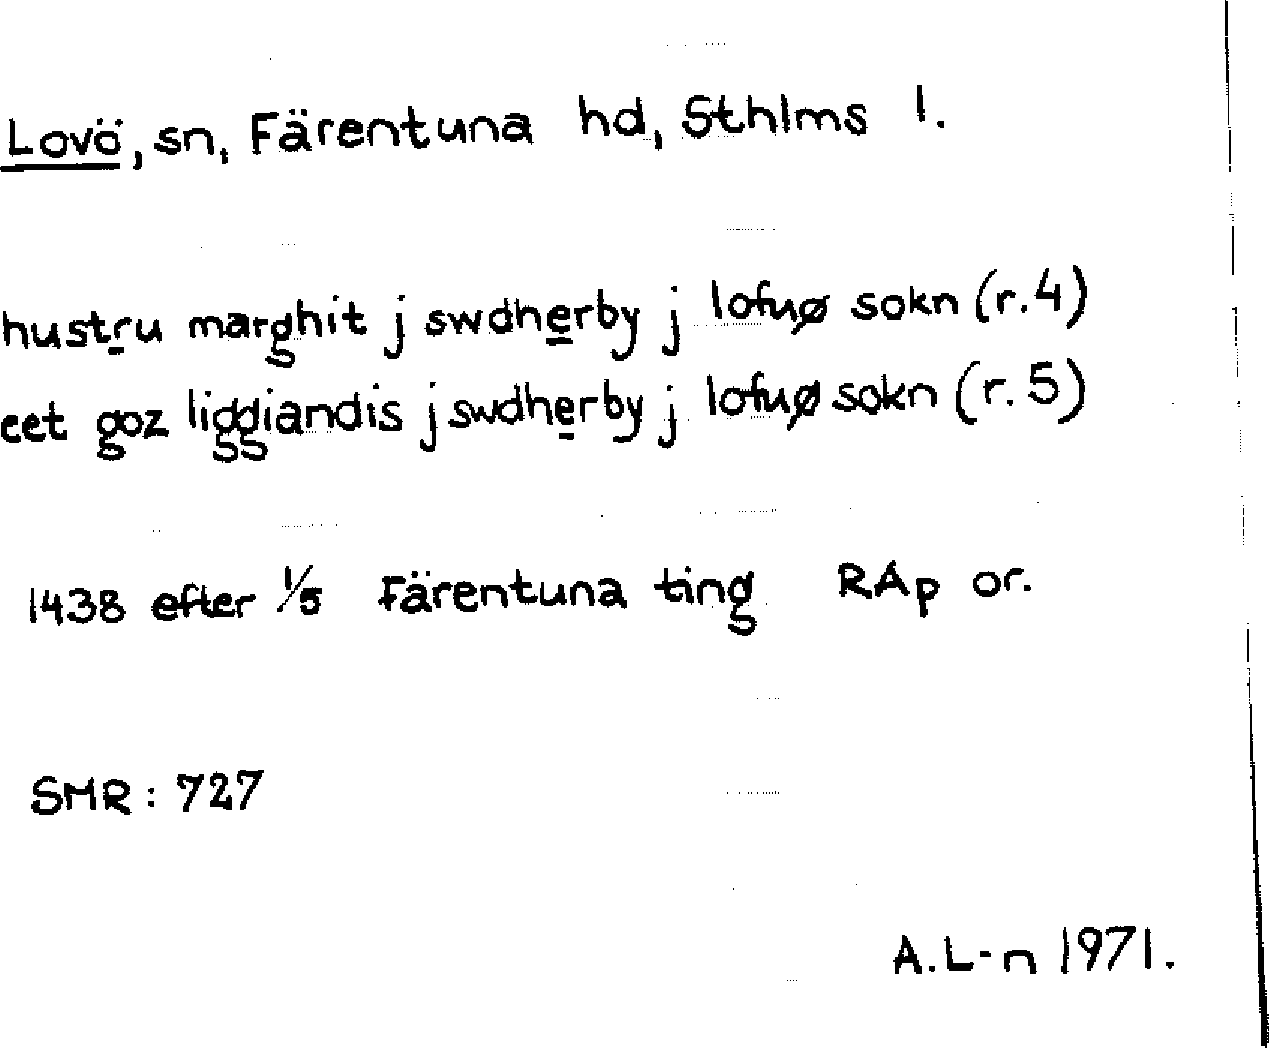 Lovö, sn, Färentuna hd, Sthlms l.
hustru marghit j swdherby j lofuø sokn (r.4)
eet goz liggiandis j swdherby j lofuø sokn (r.5)
1438 efter 1/5 Färentuna ting RAp or.
SMR: 727
A.L-n 1971.